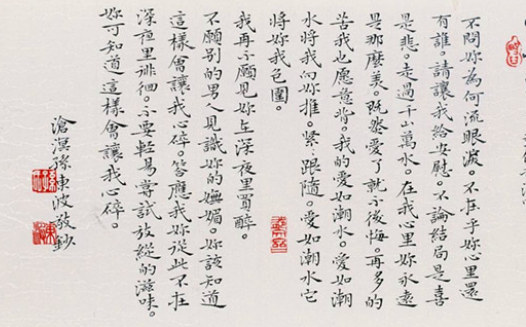 不問妳為何流眼淚。不在乎妳心里還
有誰。請讓我給安慰。不論結局是喜
是悲。走過千山萬水。在我心里妳永遠
是那麼美。既然愛了就不後悔。再多的
苦我也愿意背。我的愛如潮水。愛如潮
水將我向妳推。緊跟隨。愛如潮水它
將妳我包圍。
我再不願見妳在深夜里買醉。
不願別的男人見識妳的嫵媚。妳該知道
這樣會讓我心碎。答應我妳從此不在
深夜里徘徊。不要輕易嘗試放縱的滋味。
妳可知道這樣會讓我心碎。
滄溟孫東波敬鈔